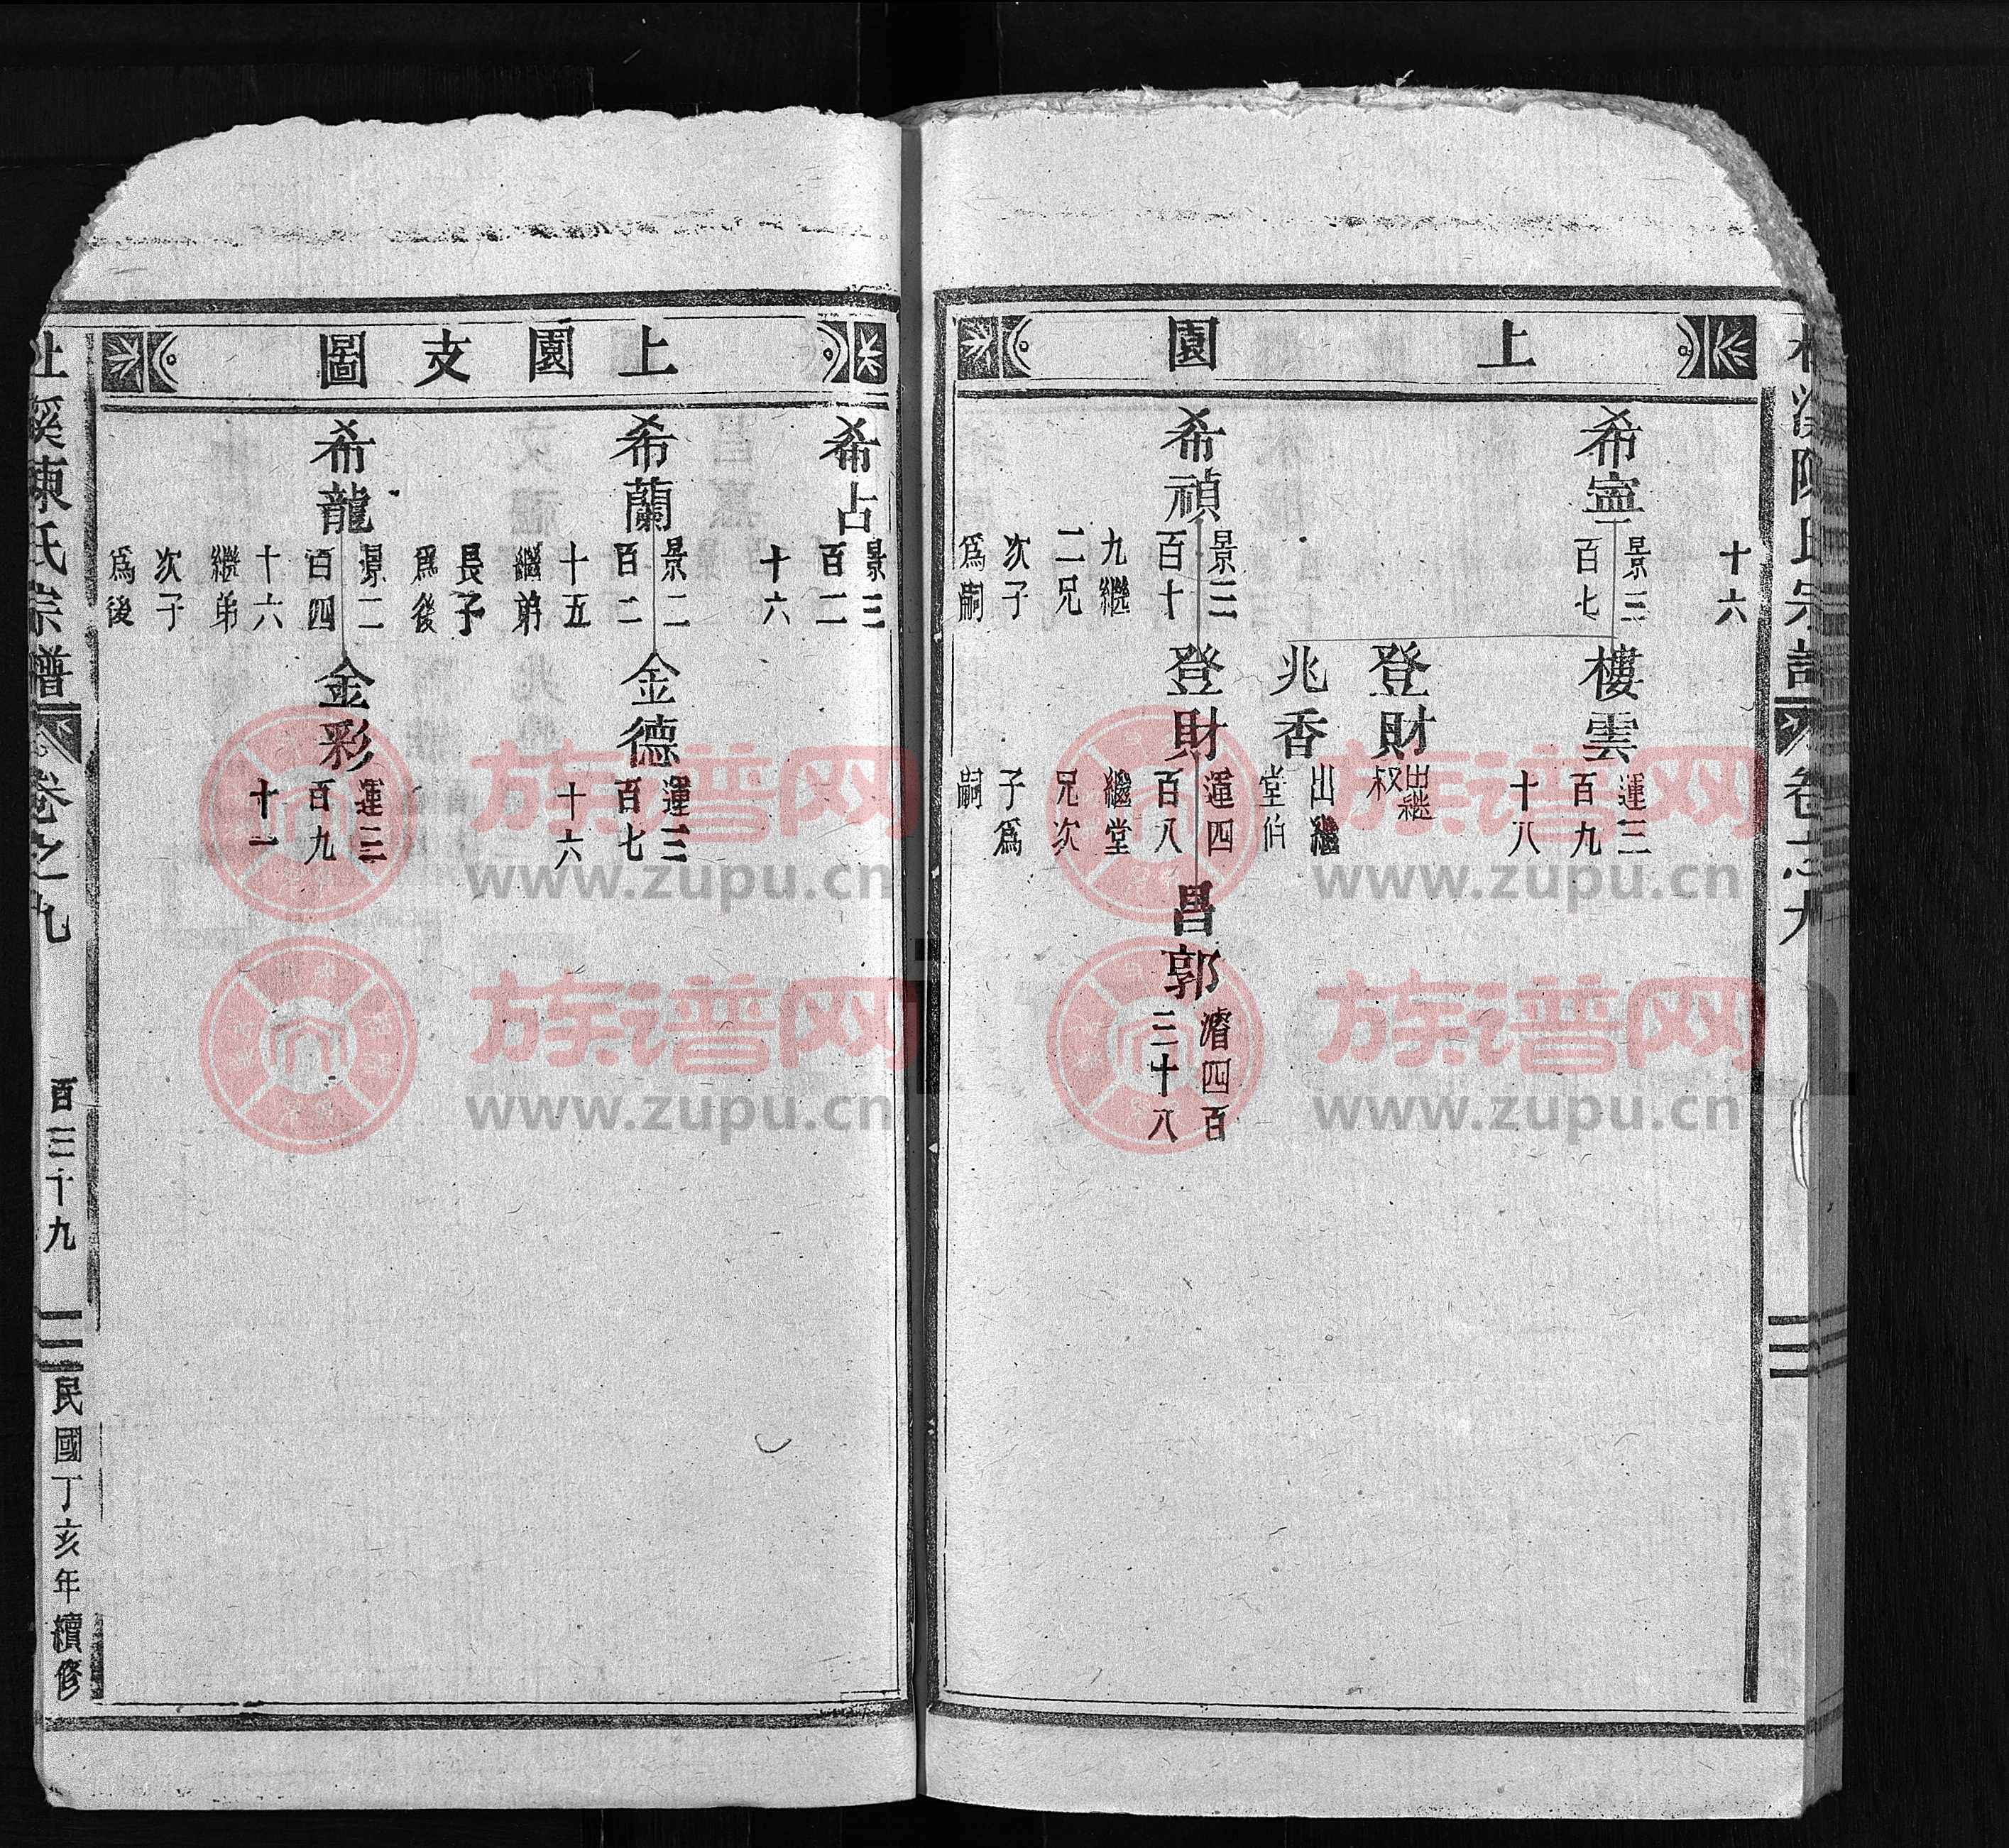 上園
十六
希寧
景三
百七
樓雲
運三
百九
十八
登財
出繼
叔
兆香
出繼
堂伯
希禎
景三
百十
九繼
二兄
次子
爲嗣
登財
運四
百八
繼堂
兄次
子爲
嗣
昌郭
濬四百
三十八
上園支圖
希占
景三
百二
十六
希蘭
景二
百二
十五
繼弟
長子
爲後
金德
運三
百七
十六
希龍
景二
百四
十六
繼弟
次子
爲後
金彩
運三
百九
十一
溪陳氏宗譜
卷之九
百三十九
民國丁亥年續修
族谱网
www.zupu.cn
族谱网
www.zupu.cn
族谱网
www.zupu.cn
族谱网
www.zupu.cn